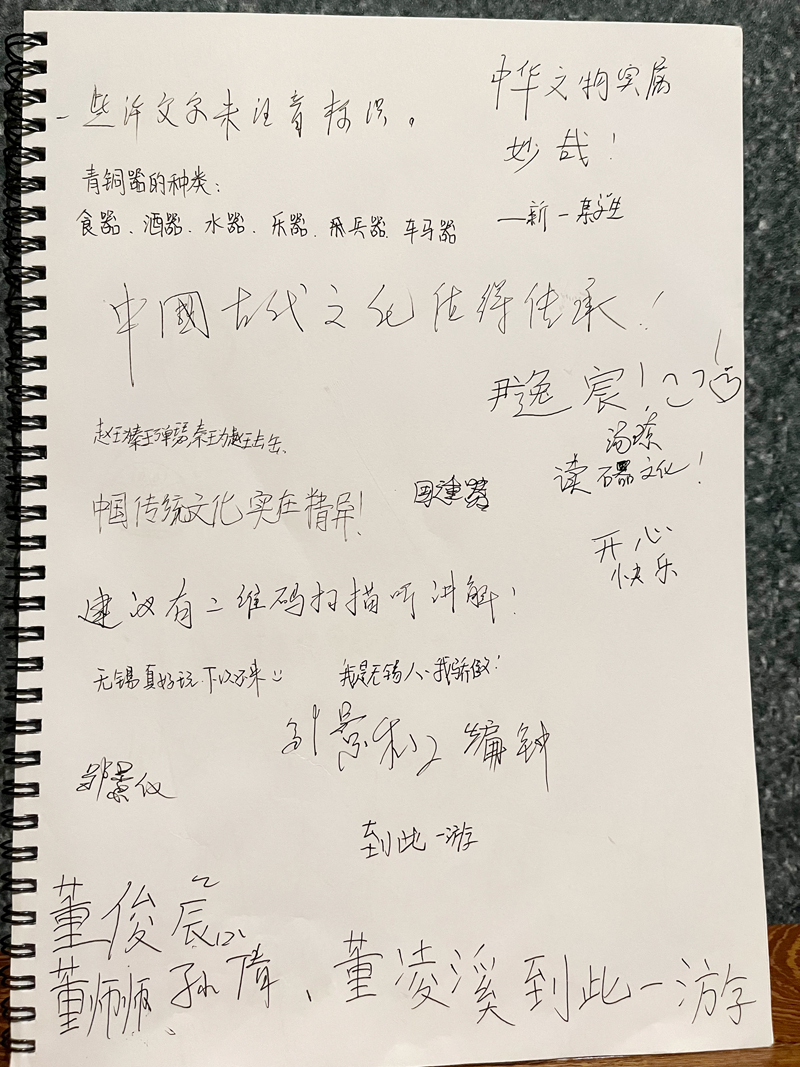 一些许文字未注音标识。
中华文物实属
妙哉!
青铜器的种类:
食器、酒器、水器、乐器、兵器、车马器
——新一
中國古代文化值得传承!
尹逸宸!
赵王秦王弹瑟,秦王为赵王击缶、
读 石器文化!
中国传统文化实在精异!
开心
快乐
建议有二维码扫描听讲解!
无锡真好玩、下次还来
我是无锡人、我骄傲!
编钟
郑景仪
到此一游
董俊辰
董师师 孙倩、董凌溪到此一游